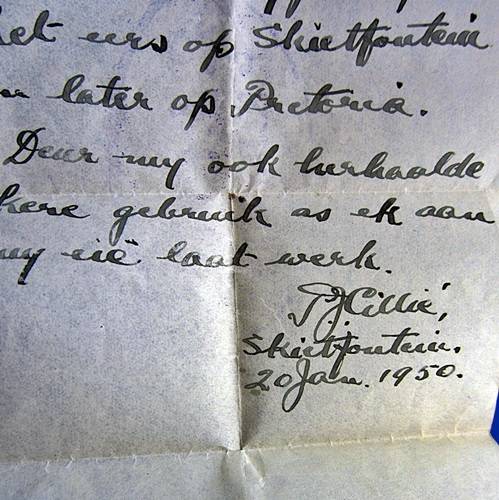 eers op Skietfontein
later op Pretoria.
Deur my ook herhaalde
kere gebruik as ek aan
my eie laat werk.
P.J. Cillié,
Skietfontein.
20 Jan. 1950.